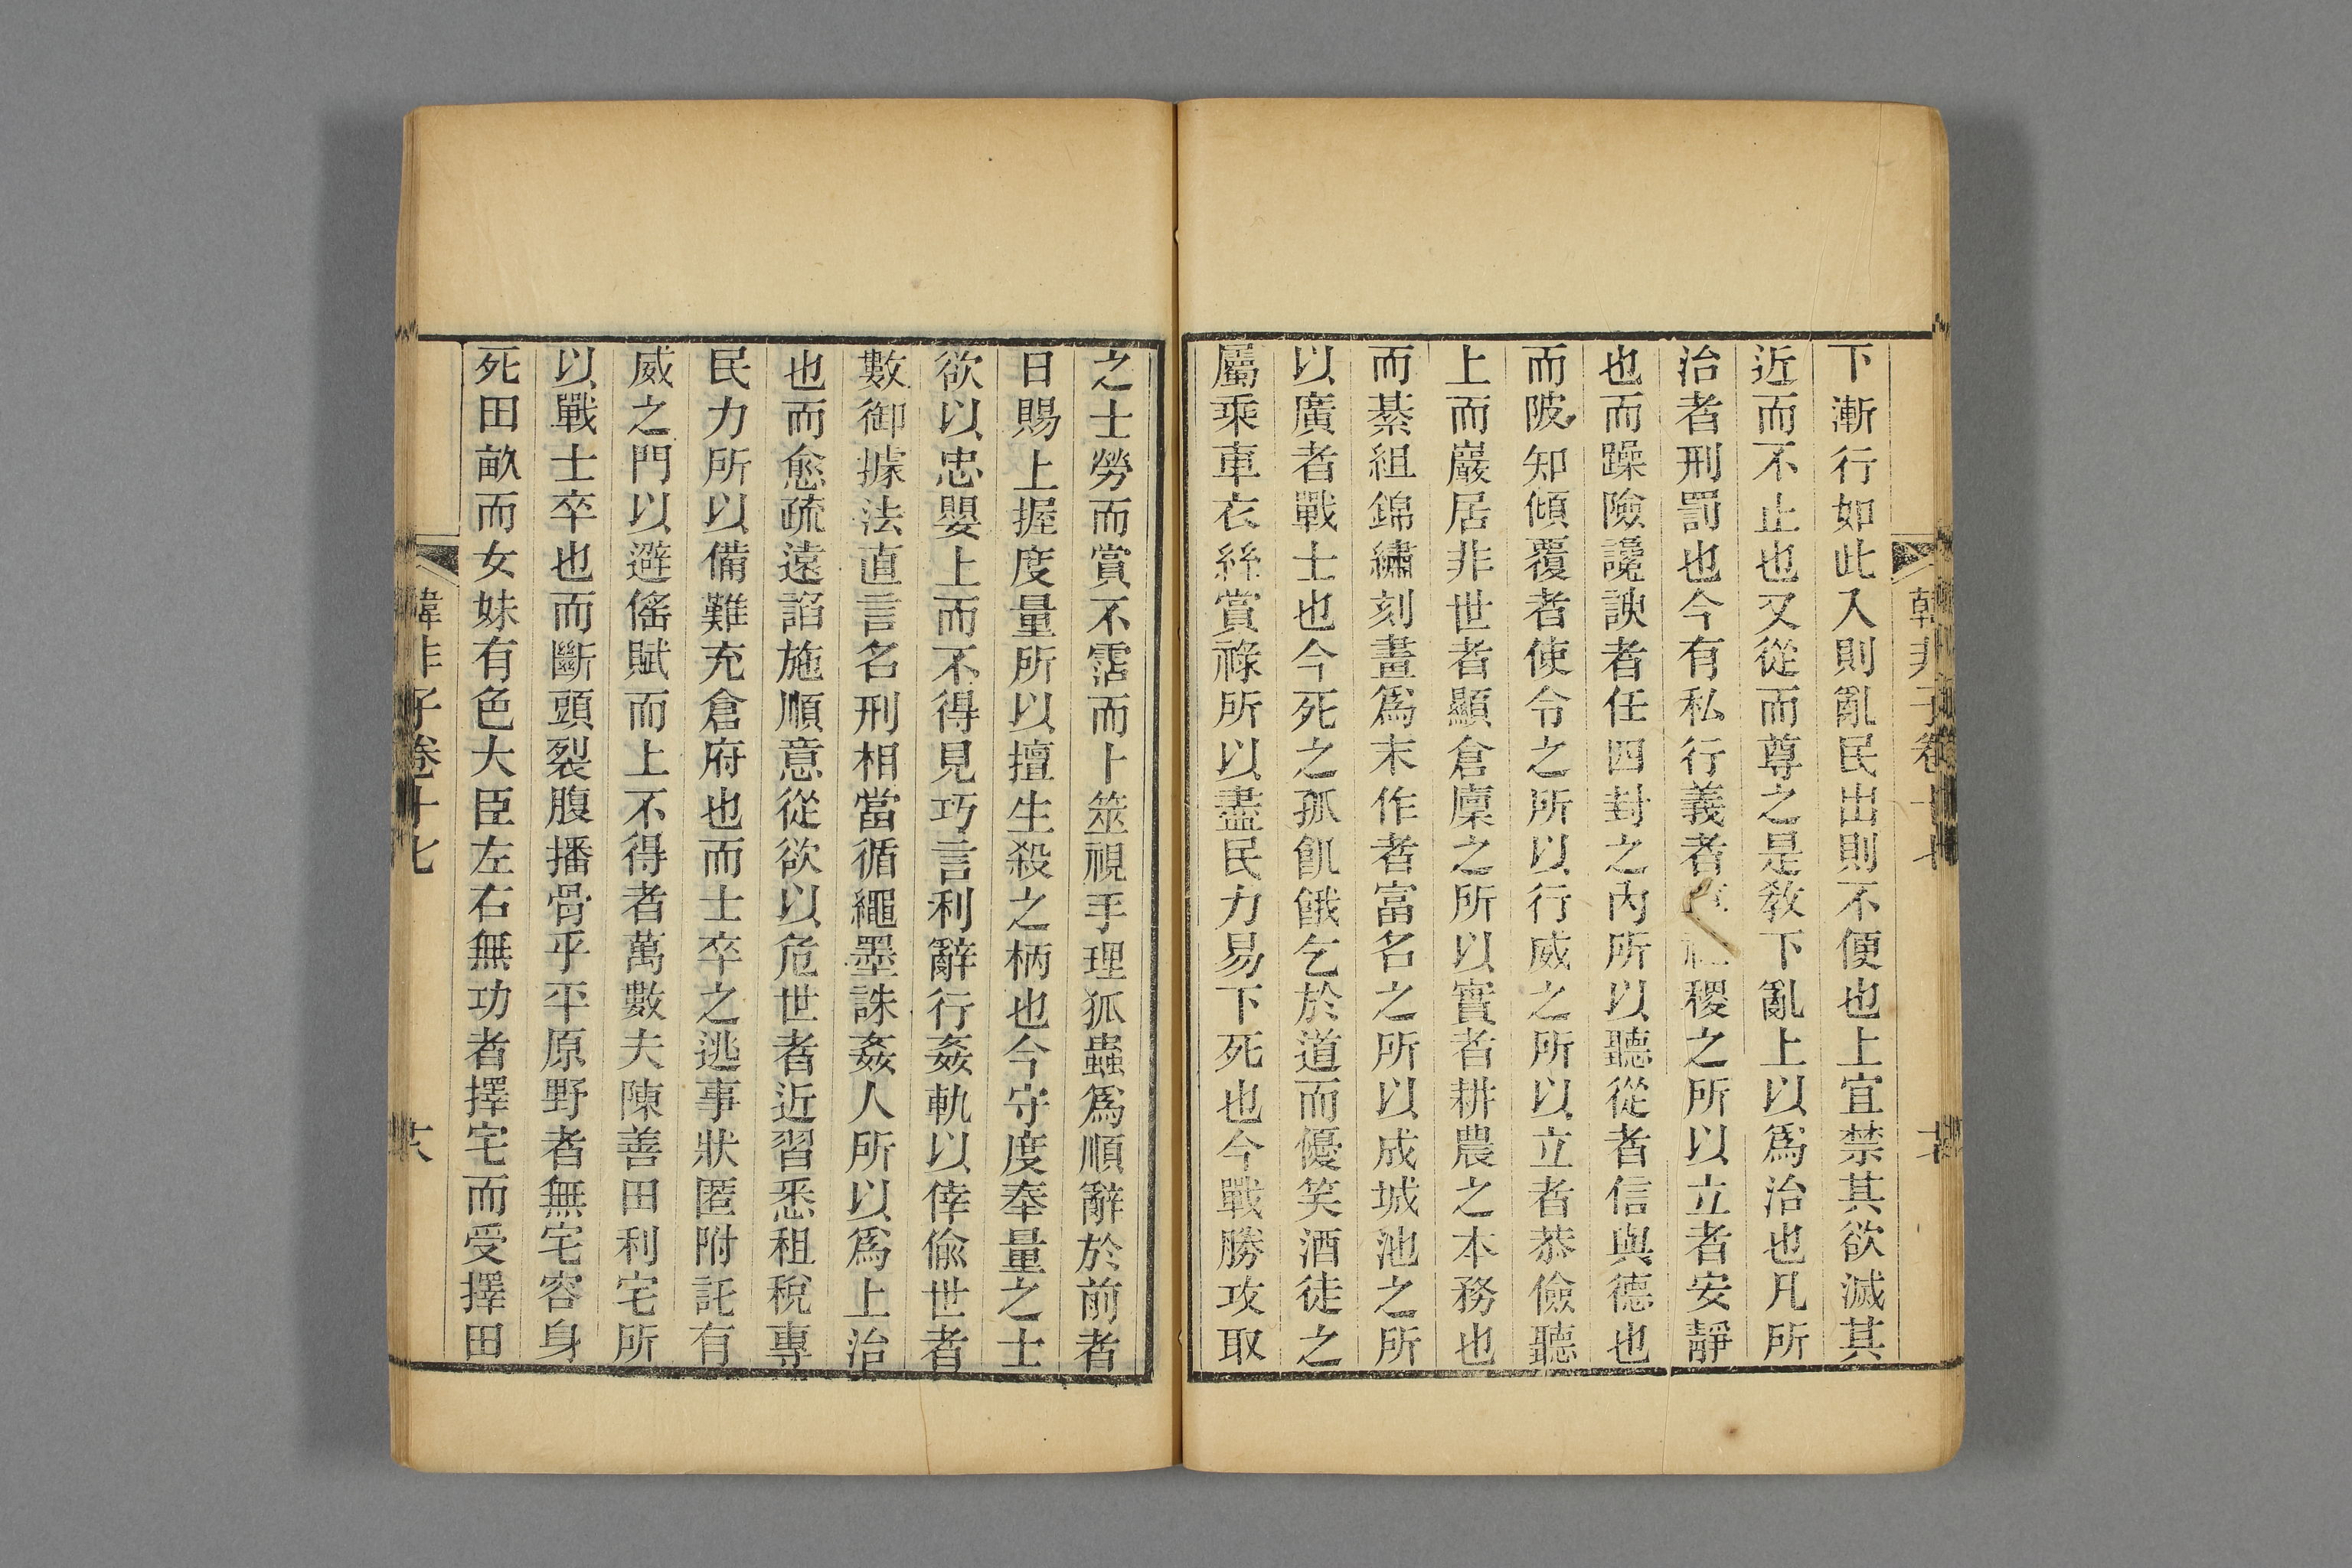 下漸行如此入則亂民出則不便也上宜禁其欲滅其
近而不止也又從而尊之是敎下亂上以爲治也凡所
治者刑罰也今有私行義者稷之所以立者安靜
也而躁險讒諛者任四封之內所以聽從者信與德也
而陂知傾覆者使令之所以行威之所以立者恭儉聽
上而巖居非世者顯倉廩之所以實者耕農之本務也
而綦組錦繡刻畫爲末作者富名之所以成城池之所
以廣者戰士也今死之孤飢餓乞於道而優笑酒徒之
屬乘車衣絲賞祿所以盡民力易下死也今戰勝攻取
之士勞而賞不霑而卜筮視手理狐蟲爲順辭於前者
日賜上握度量所以擅生殺之柄也今守度奉量之士
欲以忠嬰上而不得見巧言利辭行姦軌以倖偸世者
數御據法直言名刑相當循繩墨誅姦人所以爲上治
也而愈疏遠諂施順意從欲以危世者近習悉租稅專
民力所以備難充倉府也而士卒之逃事狀匿附託有
威之門以避徭賦而上不得者萬數夫陳善田利宅所
以戰士卒也而斷頭裂腹播骨乎平原野者無宅容身
死田畝而女妹有色大臣左右無功者擇宅而受擇田
韓非子卷十七